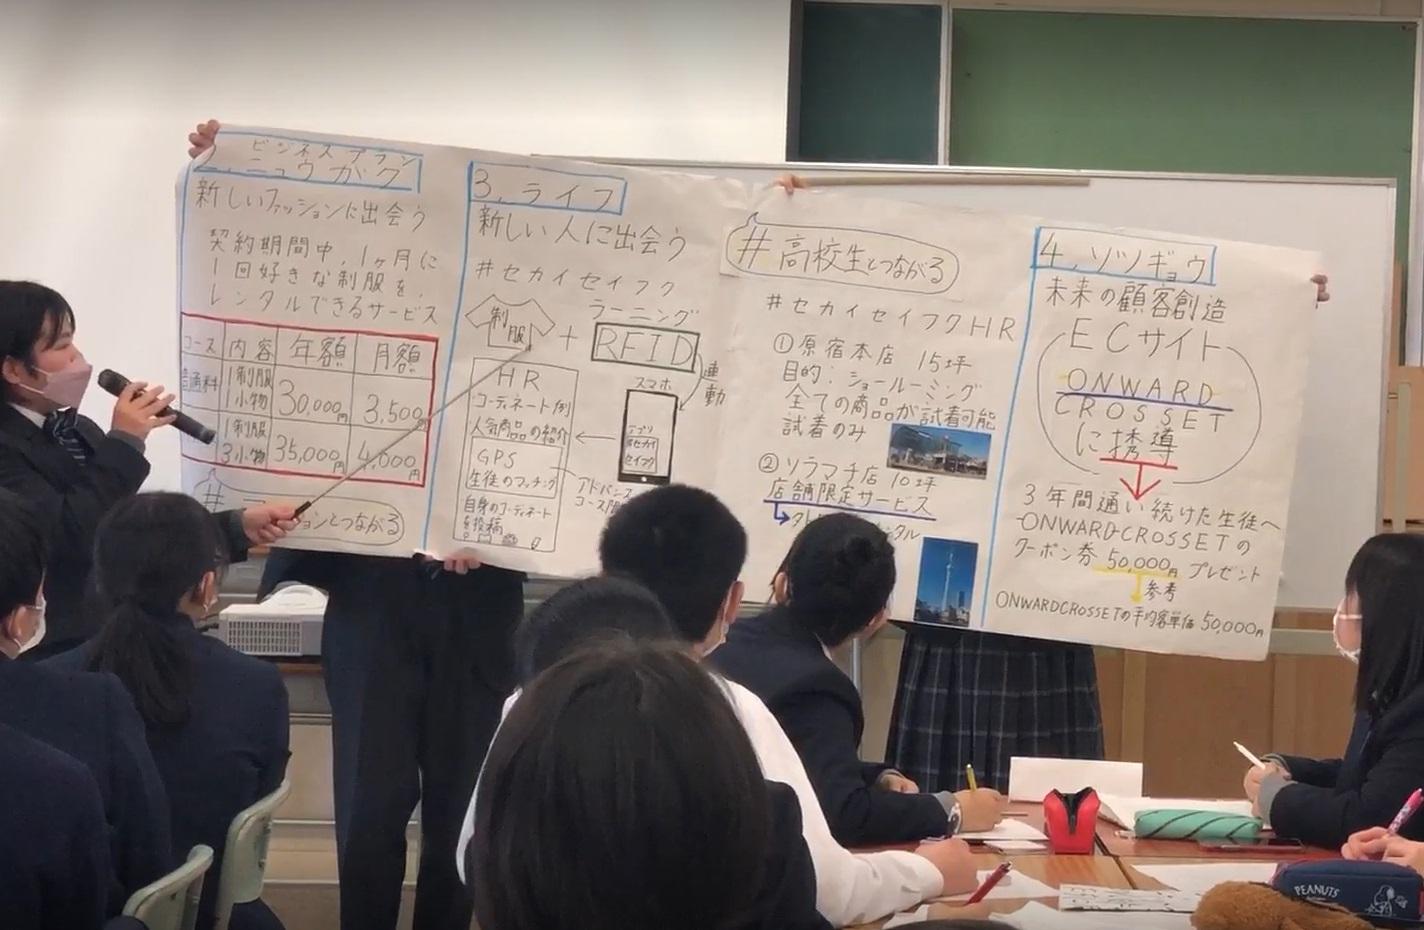 ビジネスプラン
2.ニュウガク
新しいファッションに出会う
契約期間中、1ヶ月に
1回好きな制服を.
レンタルできるサービス
コース 内容 年額 月額
普通科 1制服 1小物 30,000円 3,500円
1制服 3小物 35,000円 4,000円
#
ションとつながる
3.ライフ
新しい人に出会う
#セカイセイフク
ラーニング
制服 + RFID
連動
スマホ
HR
コーディネート例
人気商品の紹介
GPS
生徒のマッチング
自身のコーディネート
を投稿
アプリ
#セカイ
セイフク
アドバンス
コース
#高校生とつながる
#セカイセイフクHR
①原宿本店 15坪
目的:ショールーミング
全ての商品が試着可能
試着のみ
②ソラマチ店 10坪
店舗限定サービス
タル
4.ソツギョウ
未来の顧客創造
ECサイト
ONWARD
CROSSET
に誘導
3年間通い続けた生徒へ
ONWARD CROSSETの
クーポン券 50,000円 プレゼント
参考
ONWARDCROSSETの平均客単価50,000円
PEANUTS